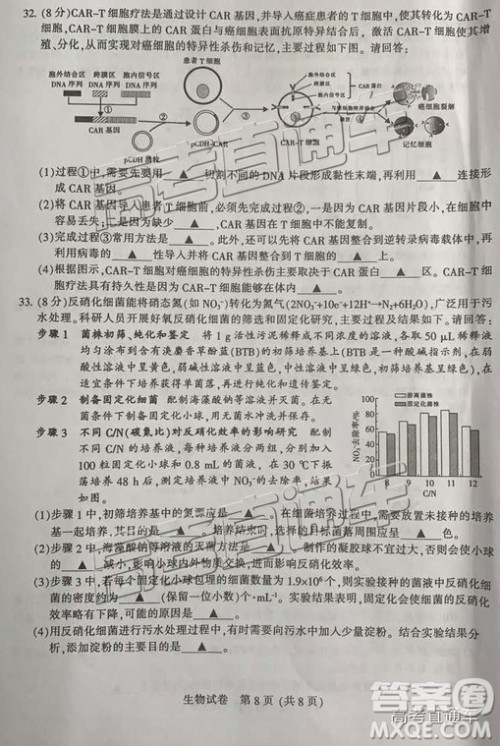 32. (8分)CAR-T细胞疗法是通过设计CAR基因,并导入癌症患者的T细胞中,使其转化为CAR-T细胞,CAR-T细胞膜上的CAR蛋白与癌细胞表面抗原特异结合后,激活CAR-T细胞使其增殖、分化,从而实现对癌细胞的特异性杀伤和记忆,主要过程如下图。请回答:
胞外结合区 跨膜区 胞内信号区
DNA序列 DNA序列 DNA序列
患者T细胞
① CAR基因
② pCDH质粒 pCDH-CAR
③ CAR-T细胞
胞外结合区
跨膜区
胞内信号区
CAR蛋白
④
癌细胞裂解
记忆细胞
(1)过程①中,需先要用 ▲ 切割不同的DNA片段形成黏性末端,再利用 ▲ 连接形成CAR基因。
(2)将CAR基因导入患者T细胞前,必须先完成过程②,一是因为CAR基因片段小,在细胞中容易丢失;二是因为 ▲ ,造成CAR基因在T细胞中不能复制。
(3)完成过程③常用方法是 ▲ 。此外,还可以先将CAR基因整合到逆转录病毒载体中,再利用病毒的 ▲ 性导入并将CAR基因整合到T细胞基因组中。
(4)根据图示,CAR-T细胞对癌细胞的特异性杀伤主要取决于CAR蛋白 ▲ 区。CAR-T细胞疗法具有持久性是因为CAR-T细胞能够在体内 ▲ 。
33. (8分)反硝化细菌能将硝态氮(如NO₃⁻)转化为氮气(2NO₃⁻+10e⁻+12H⁺→N₂+6H₂O),广泛用于污水处理。科研人员开展好氧反硝化细菌的筛选和固定化研究,主要过程及结果如下。请回答:
步骤1 菌株初筛、纯化和鉴定 将1 g活性污泥稀释成不同浓度的溶液,各取50 μL稀释液均匀涂布到含有溴麝香草酚蓝(BTB)的初筛培养基上(BTB是一种酸碱指示剂,在弱酸性溶液中呈黄色,弱碱性溶液中呈蓝色,中性溶液中呈绿色,初筛培养基呈绿色),在适宜条件下培养获得单菌落,再进行纯化和鉴定。
步骤2 制备固定化细菌 配制海藻酸钠等溶液并灭菌。在无菌条件下制备固定化小球,用无菌水洗净后保存。
步骤3 不同C/N(碳氮比)对反硝化效率的影响研究 配制不同C/N的培养液,每种培养液均设两组,分别加入100粒固定化小球和0.8 mL的菌液,在30 ℃下振荡培养48 h后,测定培养液中NO₃⁻的含量,结果如右图。
NO₃⁻去除率/%
100
80
60
40
20
0
游离菌株
固定化菌株
8 9 10 11 12
C/N
(1)步骤1中,初筛培养基中的氮源应是 ▲ 。在细菌培养过程中,需要放置未接种的培养基一起培养,其目的是 ▲ 。培养结束时,目标菌落周围的颜色是 ▲ 。
(2)步骤2中,海藻酸钠等溶液的灭菌方法是 ▲ 。制作的凝胶球不宜过大,否则会使小球的 ▲ 减小,影响小球内外物质交换,进而影响反硝化效果。
(3)步骤3中,若每个固定化小球包埋的细菌数量为1.9×10⁶个,则实验接种的菌液中反硝化细菌的密度约为 ▲ (个·mL⁻¹)。实验结果表明,固定化会使细菌的反硝化效率略有下降,可能的原因是 ▲ 。
(4)用反硝化细菌进行污水处理过程中,有时需要向污水中加入少量淀粉。结合本实验分析,添加淀粉的主要目的是 ▲ 。
生物试卷 第8页(共8页)
高考直通车
答案圈
高考直通车